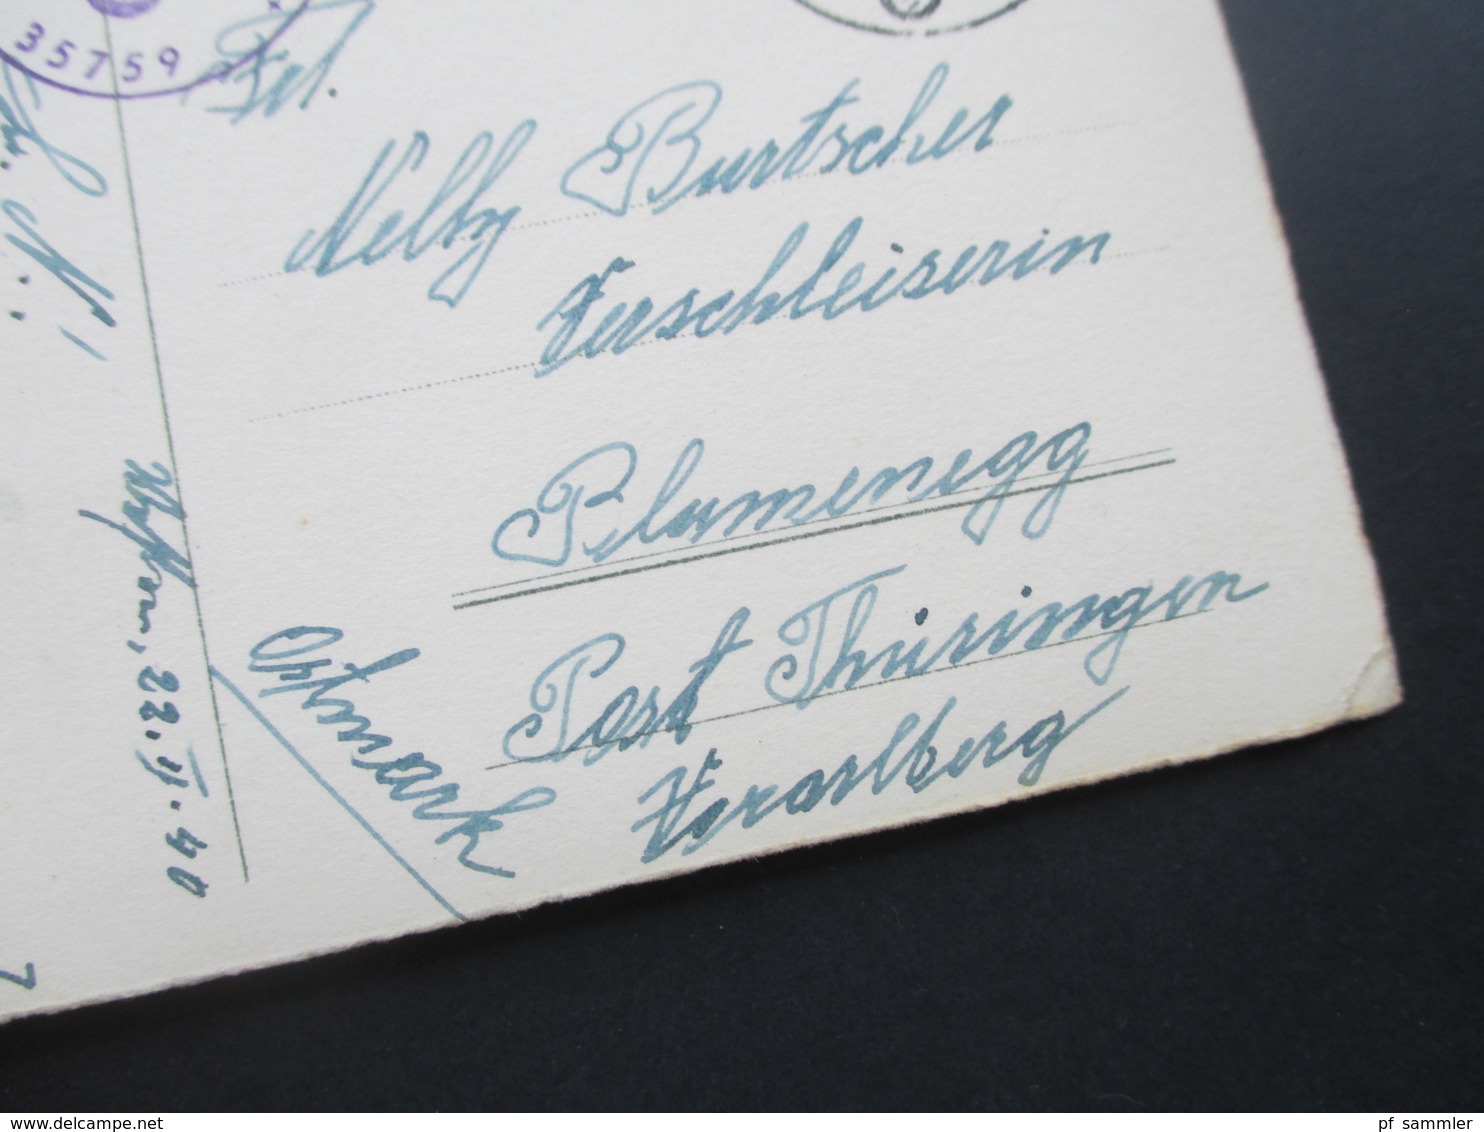 35759
Frl.
Nelly Burtscher
Verschleiserin
Blumenegg
Post Thüringen
Vorarlberg
Ostmark
22.II.40
7
www.delcampe.net
pf_sammler